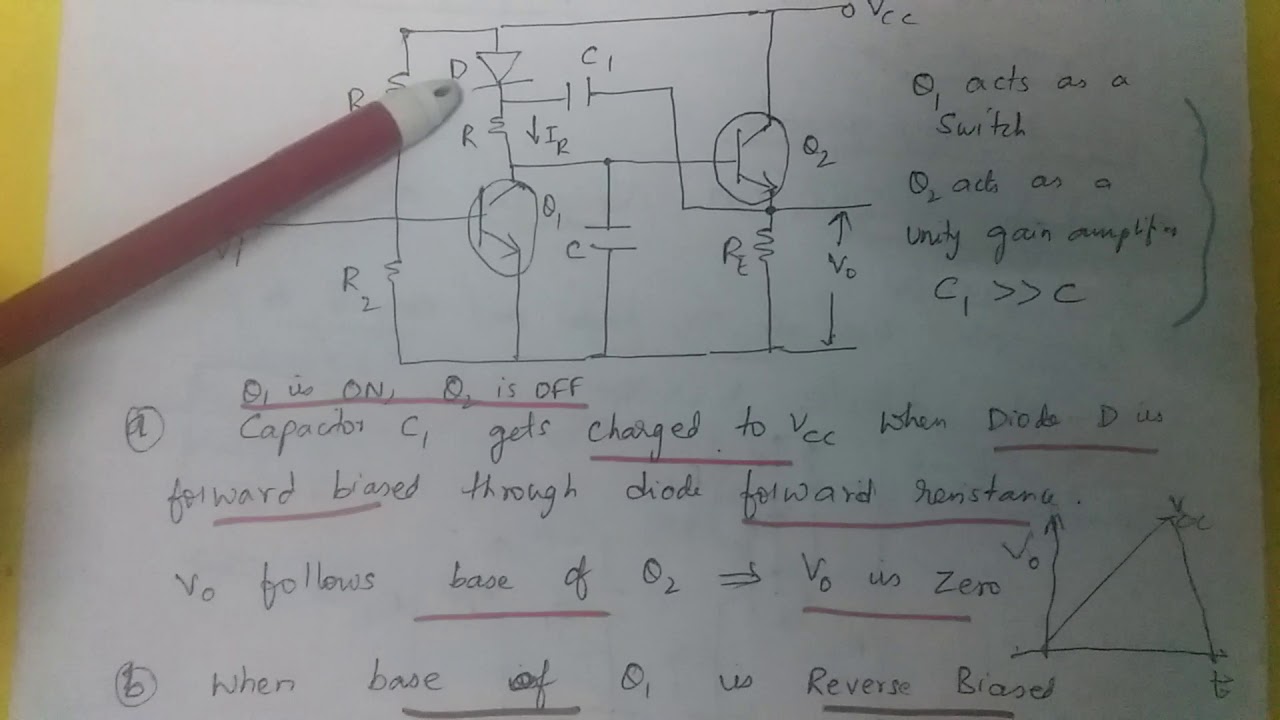 VCC
D
C1
R
R
IR
Q1
Q2
Vi
R2
C
RE
V0
Q1 acts as a
Switch
Q2 acts as a
unity gain amplifier
C1 >> C
Q1 is ON, Q2 is OFF
(a) Capactor C1 gets charged to VCC when Diode D is
forward biased through diode forward resistance.
V0 follows base of Q2 ⇒ V0 is zero
V0
VCC
t
(b) When base of Q1 is Reverse Biased